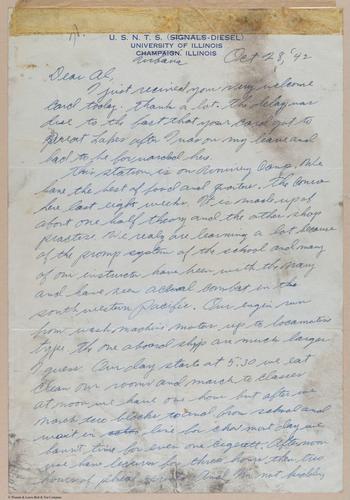 U. S. N. T. S. (SIGNALS-DIESEL)
UNIVERSITY OF ILLINOIS
CHAMPAIGN, ILLINOIS
Urbana Oct 28, '42
Dear Al,
I just received your very welcome
card today. thank a lot. the delay was
due to the fact that your card got to
Great Lakes after I was on my leave and
had to be forwarded here.
This station is on University Camp. We
have the best of food and quarters. the course
here last eight weeks. It is made up of
about one half theory and the other shop
practice. We realy are learning a lot because
of the system of the school and many
of our instructor have been with the Navy
and have seen actual combat in the
south western Pacific. Our engin run
from wash machine motor up to locomotive
type. the one aboard ships are much larger
I guess. Our day starts at 5:30 we eat
clean our rooms and march to classes
at noon we have one hour but after we
march two blocks to and from school and
wait in line for chow most day we
havnt time for even one cigarett. Afternoon
we have lectures for three hours then two
hours of